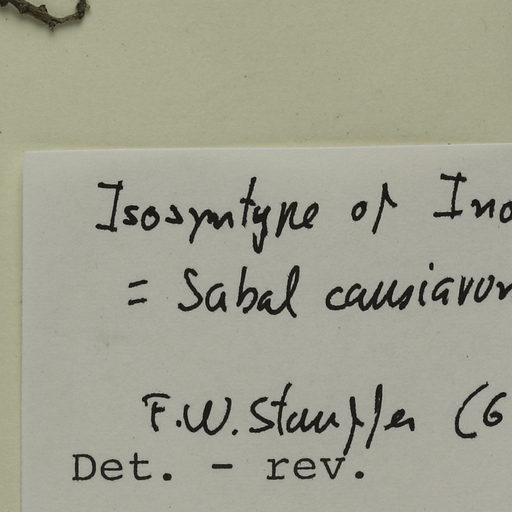 Isosyntype of Ino
= Sabal causiavor
F.W. Stauffer (G
Det. - rev.